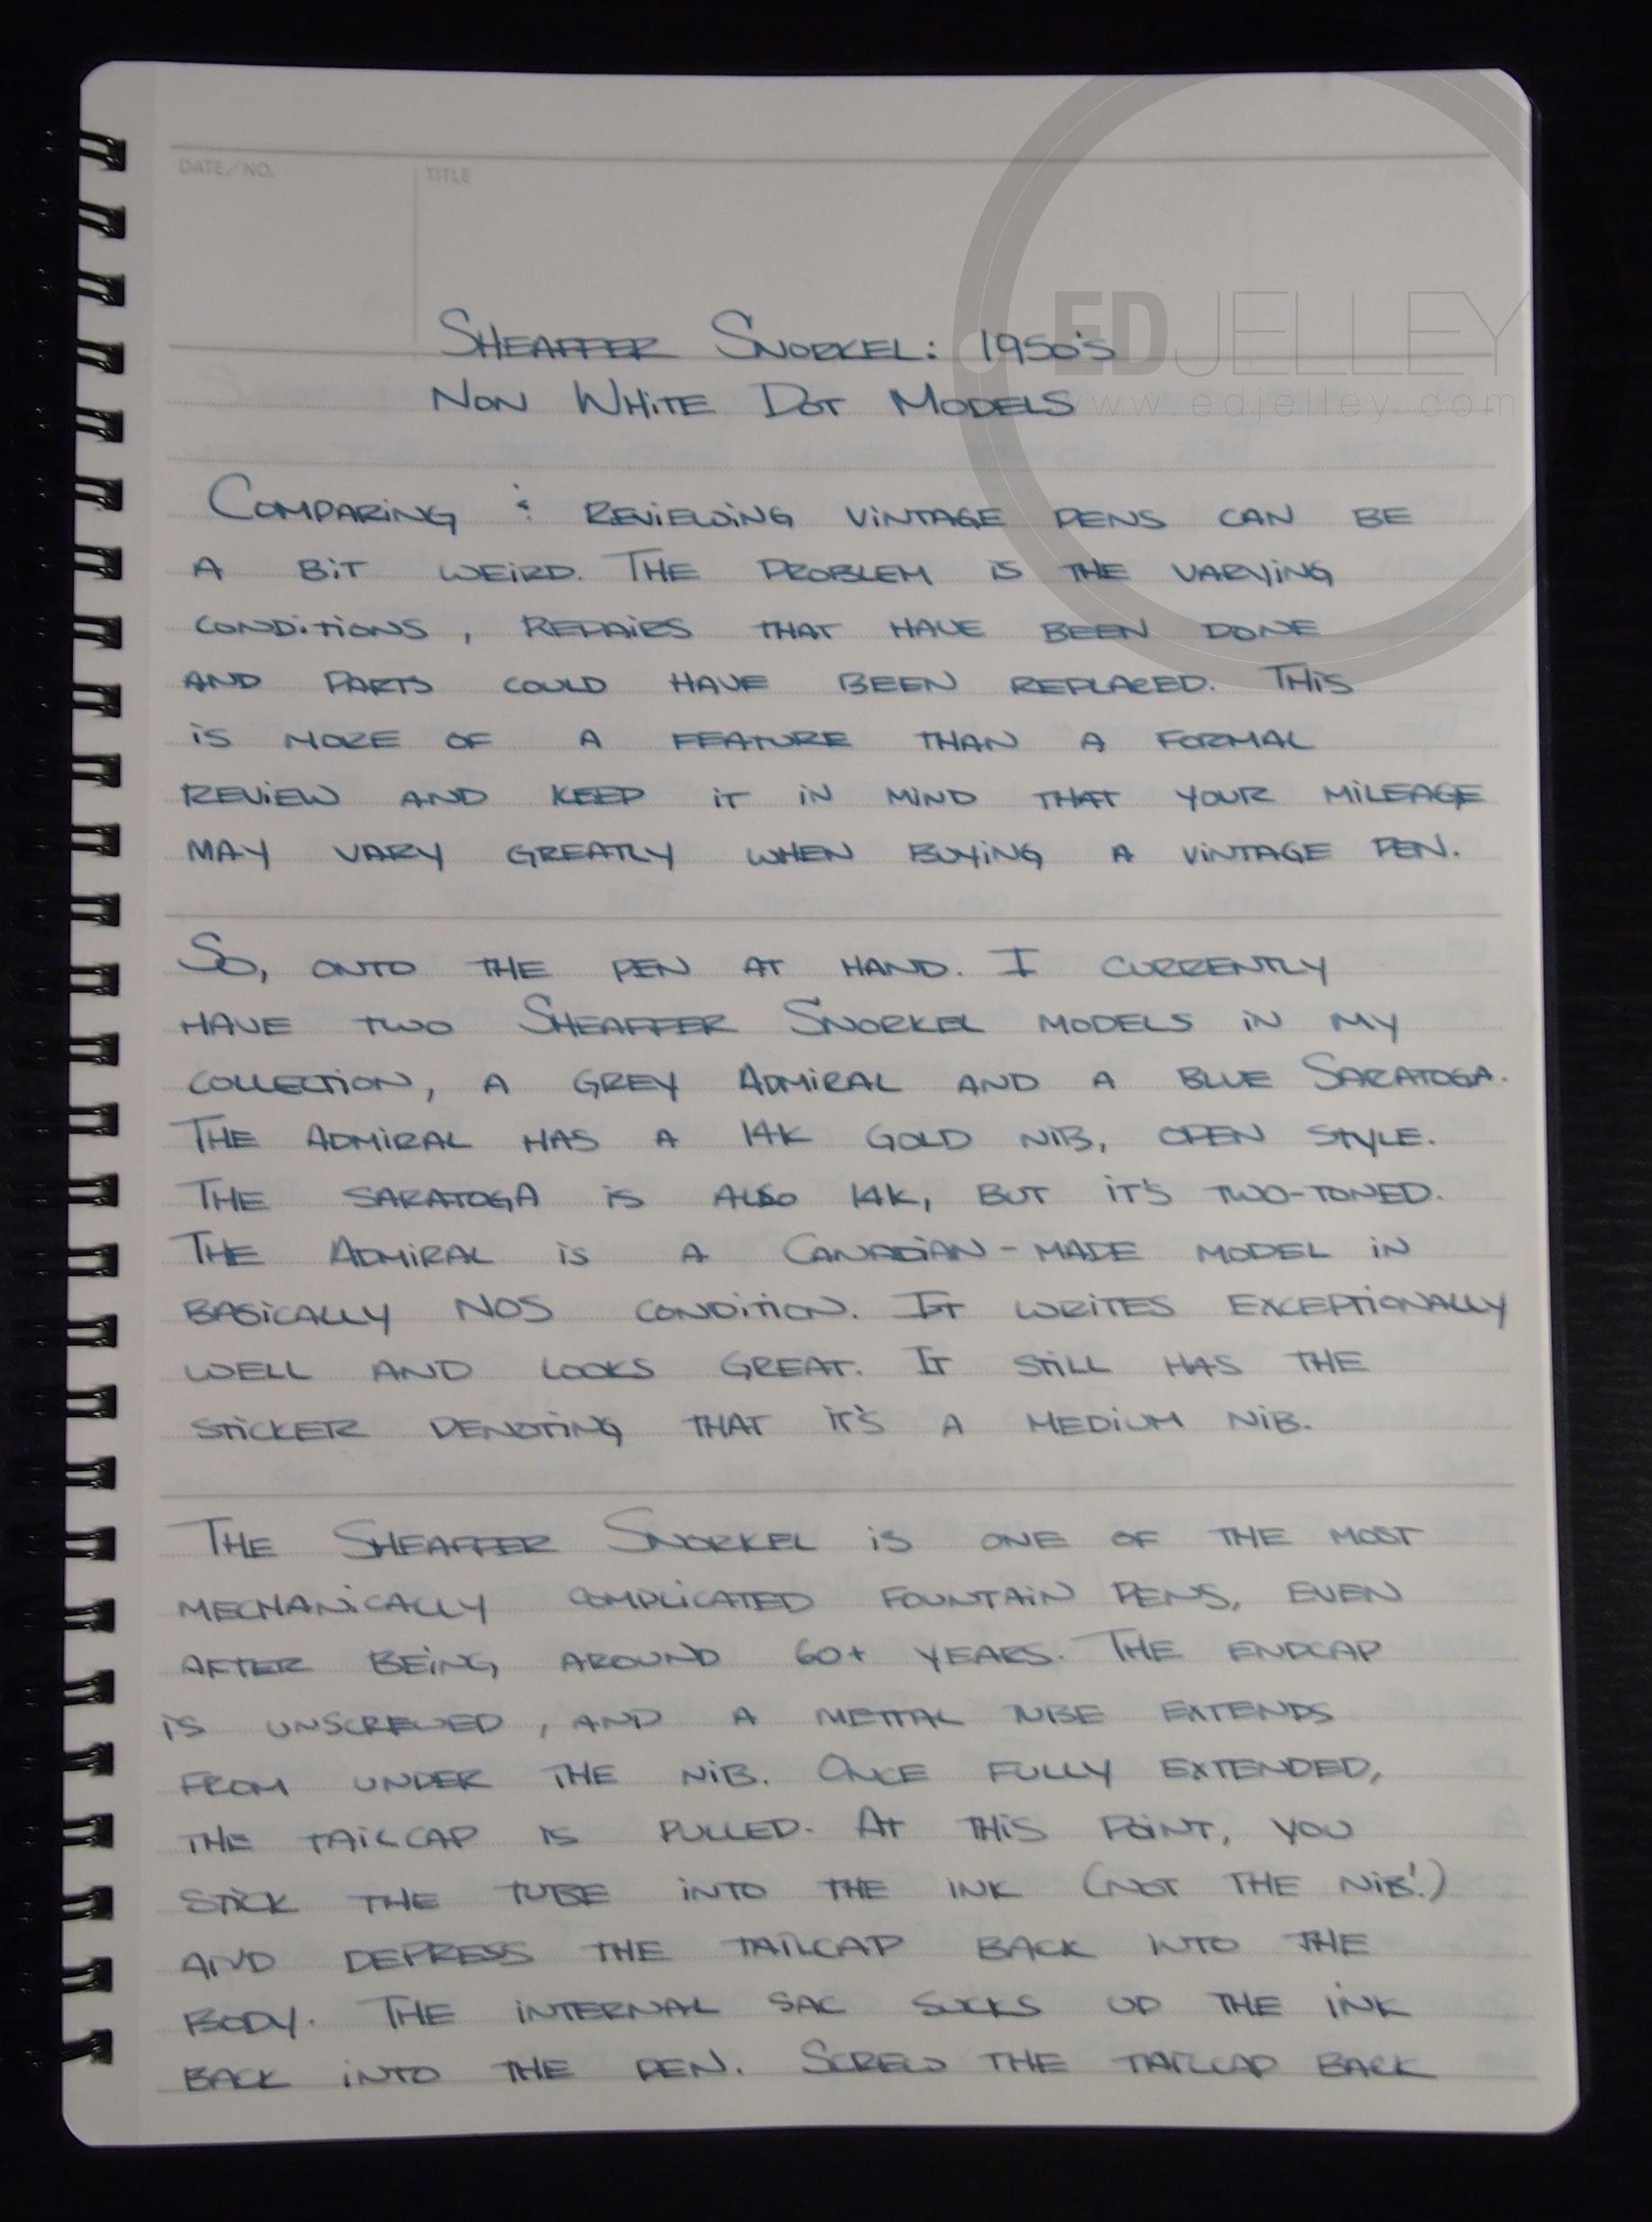 DATE/NO.
TITLE
EDJELLEY
www.edjelley.com
SHEAFFER SNORKEL: 1950'S
NON WHITE DOT MODELS
COMPARING & REVIEWING VINTAGE PENS CAN BE
A BIT WEIRD. THE PROBLEM IS THE VARYING
CONDITIONS, REPAIRS THAT HAVE BEEN DONE
AND PARTS COULD HAVE BEEN REPLACED. THIS
IS MORE OF A FEATURE THAN A FORMAL
REVIEW AND KEEP IT IN MIND THAT YOUR MILEAGE
MAY VARY GREATLY WHEN BUYING A VINTAGE PEN.
SO, ONTO THE PEN AT HAND. I CURRENTLY
HAVE TWO SHEAFFER SNORKEL MODELS IN MY
COLLECTION, A GREY ADMIRAL AND A BLUE SARATOGA.
THE ADMIRAL HAS A 14K GOLD NIB, OPEN STYLE.
THE SARATOGA IS ALSO 14K, BUT IT'S TWO-TONED.
THE ADMIRAL IS A CANADIAN-MADE MODEL IN
BASICALLY NOS CONDITION. IT WRITES EXCEPTIONALLY
WELL AND LOOKS GREAT. IT STILL HAS THE
STICKER DENOTING THAT IT'S A MEDIUM NIB.
THE SHEAFFER SNORKEL IS ONE OF THE MOST
MECHANICALLY COMPLICATED FOUNTAIN PENS, EVEN
AFTER BEING AROUND 60+ YEARS. THE ENDCAP
IS UNSCREWED, AND A METTAL TUBE EXTENDS
FROM UNDER THE NIB. ONCE FULLY EXTENDED,
THE TAILCAP IS PULLED. AT THIS POINT, YOU
STICK THE TUBE INTO THE INK (NOT THE NIB!)
AND DEPRESS THE TAILCAP BACK INTO THE
BODY. THE INTERNAL SAC SUCKS UP THE INK
BACK INTO THE PEN. SCREW THE TAILCAP BACK